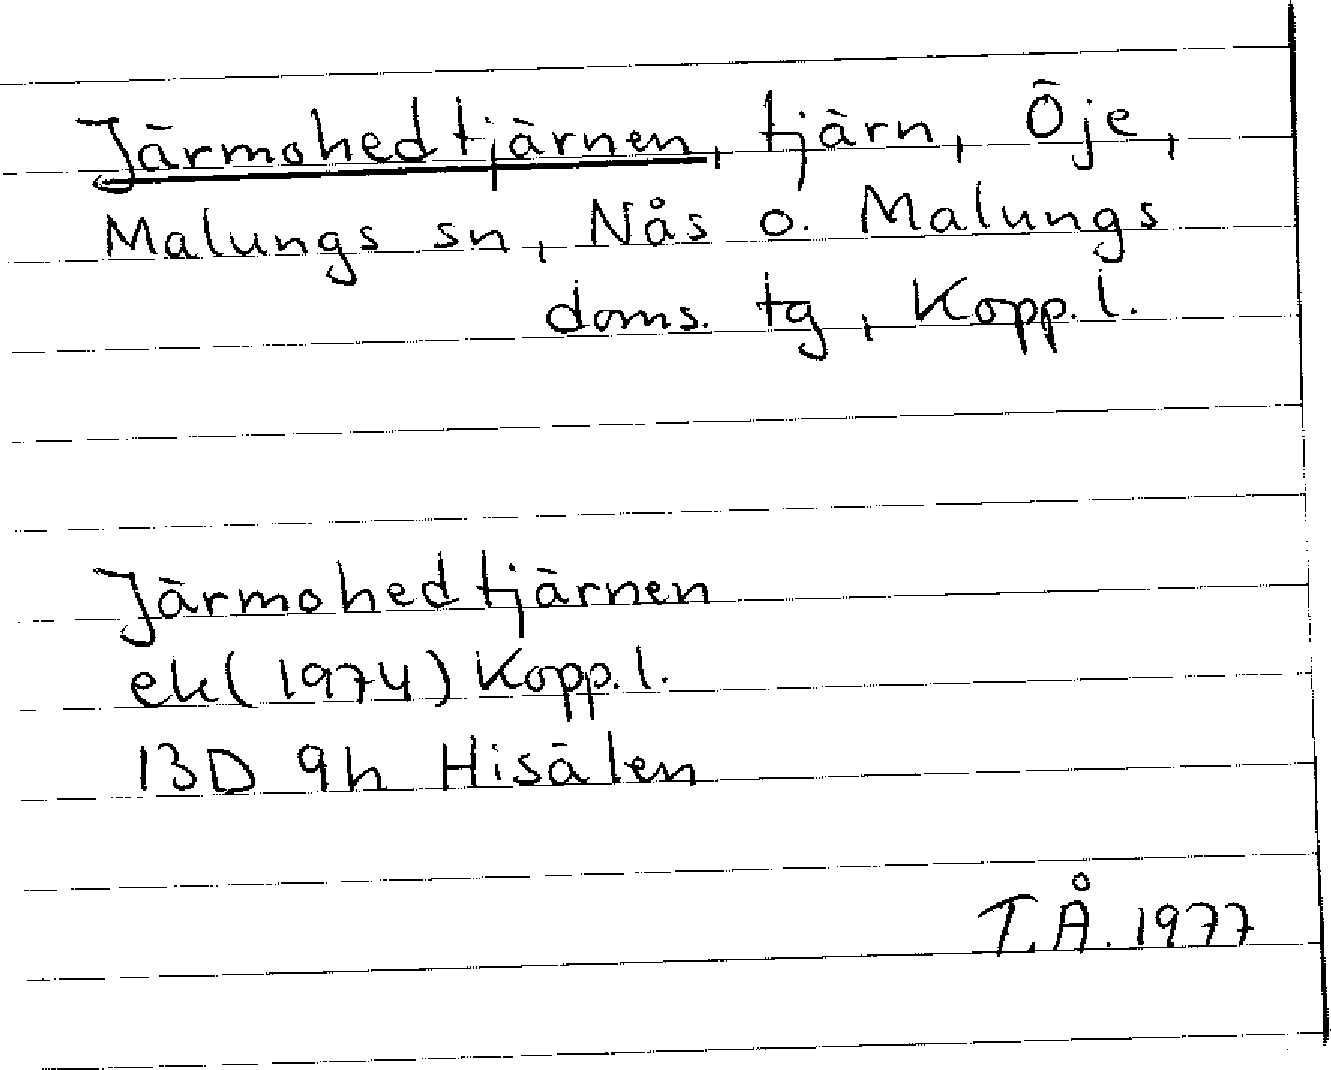 Järmohedtjärnen, tjärn, Öje,
Malungs sn, Nås o. Malungs
doms. tg, Kopp. l.
Järmohedtjärnen
ek (1974) Kopp. l.
13D 9h Hisälen
T.Å. 1977